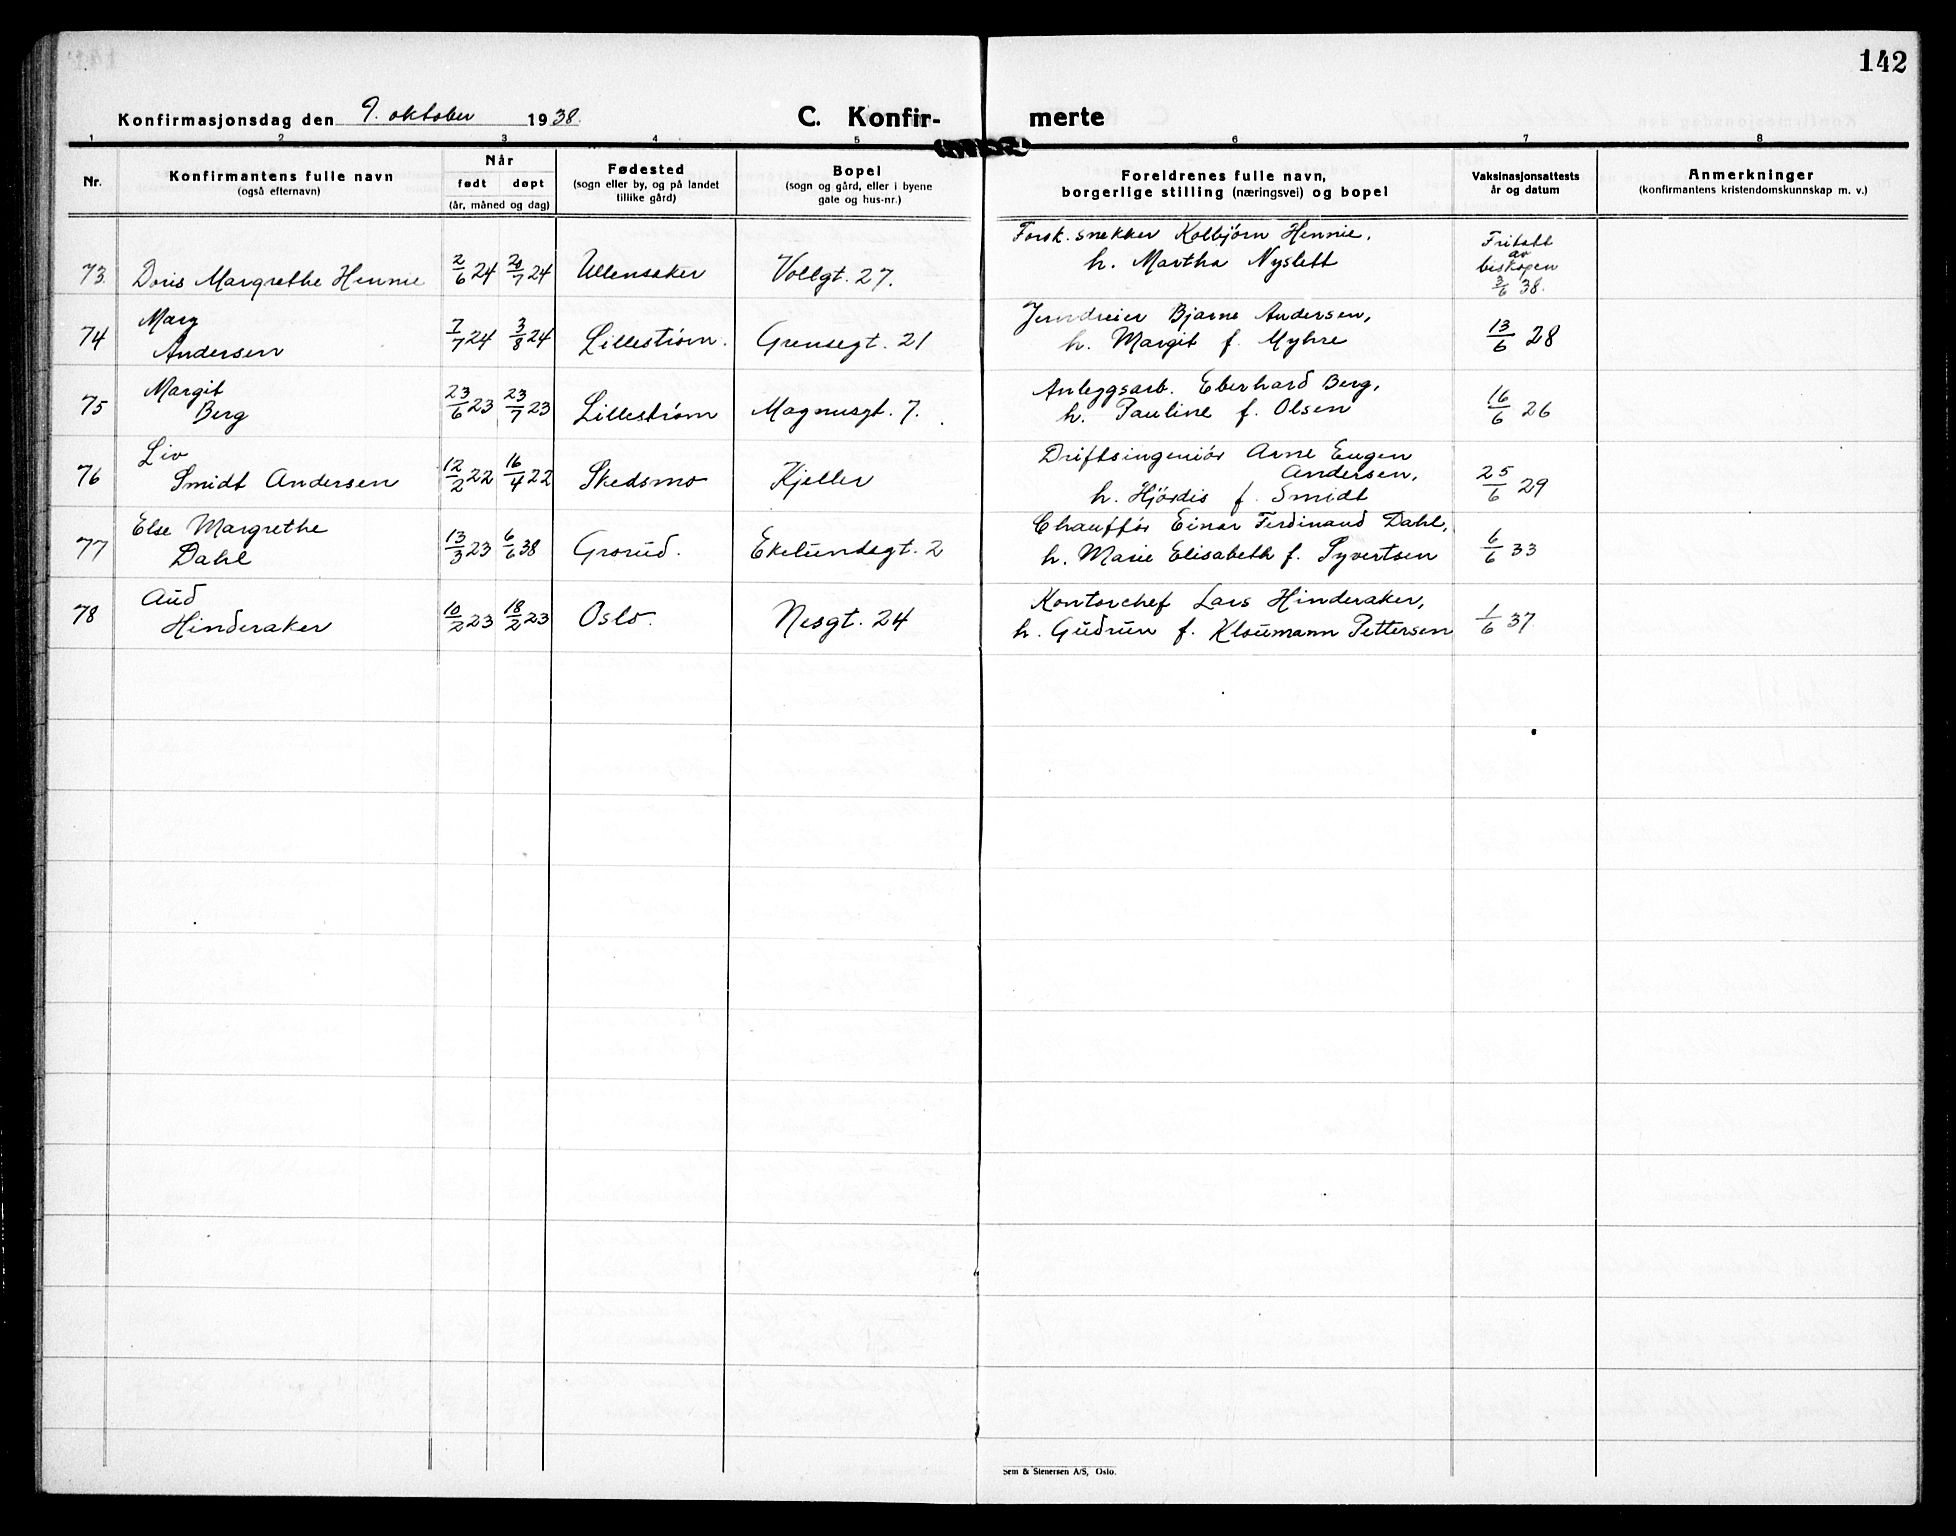 142
Konfirmasjonsdag den 9. oktober 1938.
C. Konfir- merte
1 2 3 4 5 6 7 8
Nr.
Konfirmantens fulle navn
(også efternavn)
Når
født døpt
(år, måned og dag)
Fødested
(sogn eller by, og på landet
tillike gård)
Bopel
(sogn og gård, eller i byene
gate og hus-nr.)
Foreldrenes fulle navn,
borgerlige stilling (næringsvei) og bopel
Vaksinasjonsattests
år og datum
Anmerkninger
(konfirmantens kristendomskunnskap m. v.)
73 Doris Margrethe Hennie 2/6 24 20/7 24 Ullensaker Vollgt. 27.
Forsk. snekker Kolbjørn Hennie,
h. Martha Nyslett
Fritatt
av
biskopen
3/6 38.
74 Marg
Andersen 7/7 24 3/8 24 Lillestrøm. Grensegt. 21
Jerndreier Bjarne Andersen,
h. Margit f. Myhre
13/6 28
75 Margit
Berg 23/6 23 23/7 23 Lillestrøm Magnusgt. 7.
Anleggsarb. Eberhard Berg,
h. Pauline f. Olsen
16/6 26
76 Liv
Smidt Andersen 12/2 22 16/4 22 Skedsmo Kjeller
Driftsingeniør Arne Eugen
Andersen,
h. Hjørdis f. Smidt
25/6 29
77 Else Margrethe
Dahl 13/3 23 6/6 38 Grorud. Ekelundsgt. 2
Chauffør Einar Ferdinand Dahl,
h. Marie Elisabeth f. Syvertsen
6/6 33
78 Aud
Hinderaker 10/2 23 18/2 23 Oslo. Nesgt. 24
Kontorchef Lars Hinderaker,
h. Gudrun f. Klaumann Pettersen
1/6 37
Sem & Stenersen A/S, Oslo.